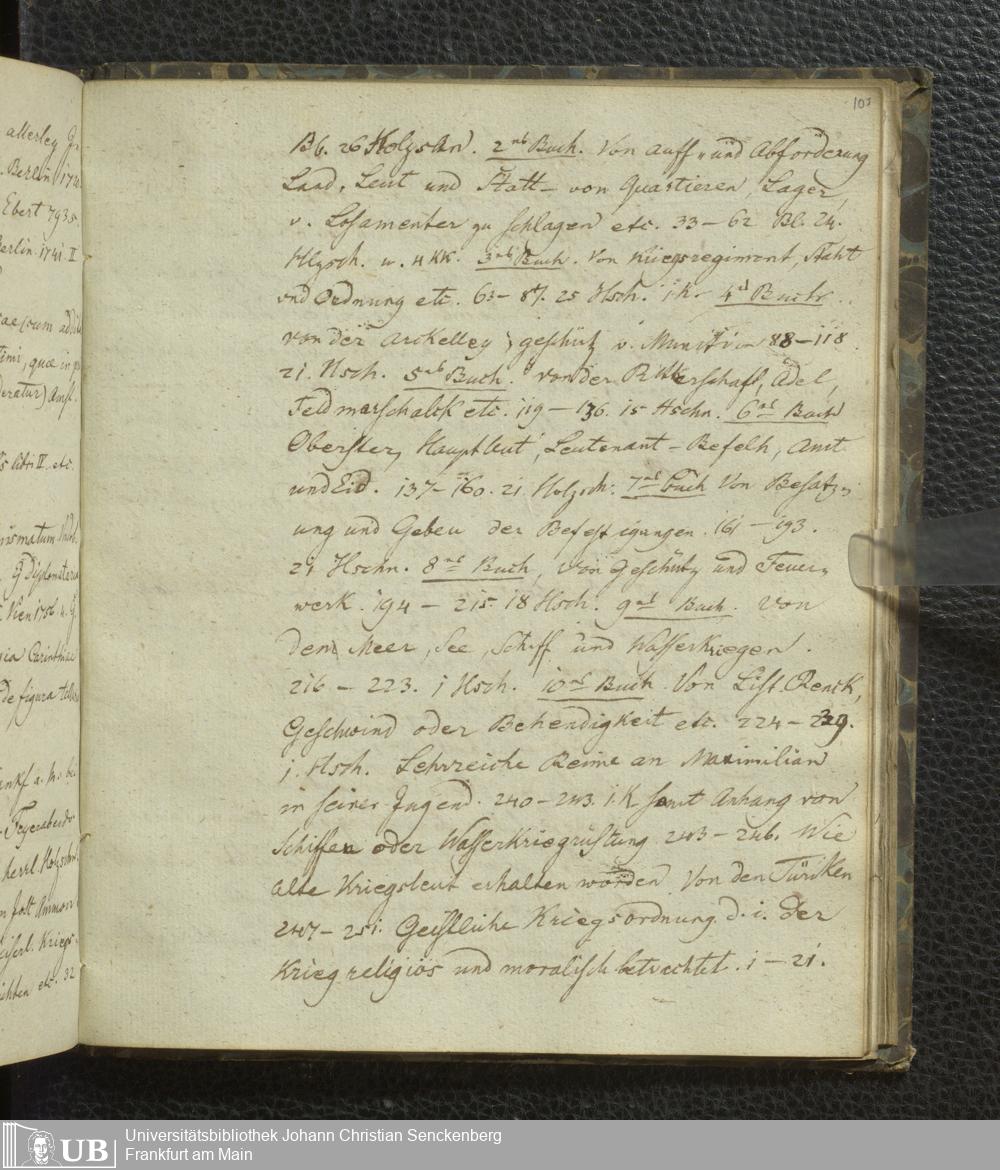 allerley
Berlin 174
Ebert 7935.
Berlin. 1741. II
quae in
Amst.
Libri II. etc.
Vien 1756. 4.
de figura
Frankf. a. M. bei
Feyerabend
herrl. Holzschn.
Kriegs-
etc. 32
103
Bl. 26 Holzschn. 2tes Buch. Von auff- und Abforderung
Land, Leut und Statt – von Quartieren, Lager,
v. Losamenter zu schlagen etc. 33–62 Bl. 24.
Hlzsch. u. 4 KK. 3tes Buch. Von Kriegsregiment, Staht
und Ordnung etc. 63–87. 25 Hsch. 1 K. 4tes Buch.
von der Arckelley, geschütz v. Munition 88–118
21. Hsch. 5tes Buch. von der Ritterschaft, Adel,
Feldmarschalck etc. 119–136. 15 Hschn. 6tes Buch
Oberster, Hauptleut, Leutenant – Befelh, Amt
und Eid. 137–160. 21 Holzsch. 7tes Buch Von Besatz-
ung und Gebeu der Befestigungen. 161–193.
21 Hschn. 8tes Buch, von Geschütz und Feuer-
werk. 194–215. 18 Hsch. 9tes Buch. Von
den Meer, See, Schiff und Wasserkriegen.
216–223. 1 Hsch. 10tes Buch. Von List, Renck,
Geschwind oder Behendigkeit etc. 224–239.
1. Hsch. Lehrreiche Reime an Maximilian
in seiner Jugend. 240–243. 1 K samt Anhang von
Schiffen oder Wasserkriegrüstung 243–246. Wie
alte Kriegsleut erhalten worden. Von den Türken
247–251. Geistliche Kriegsordnung d. i. der
Krieg religiös und moralisch betrachtet. 1–21.
UB
Universitätsbibliothek Johann Christian Senckenberg
Frankfurt am Main